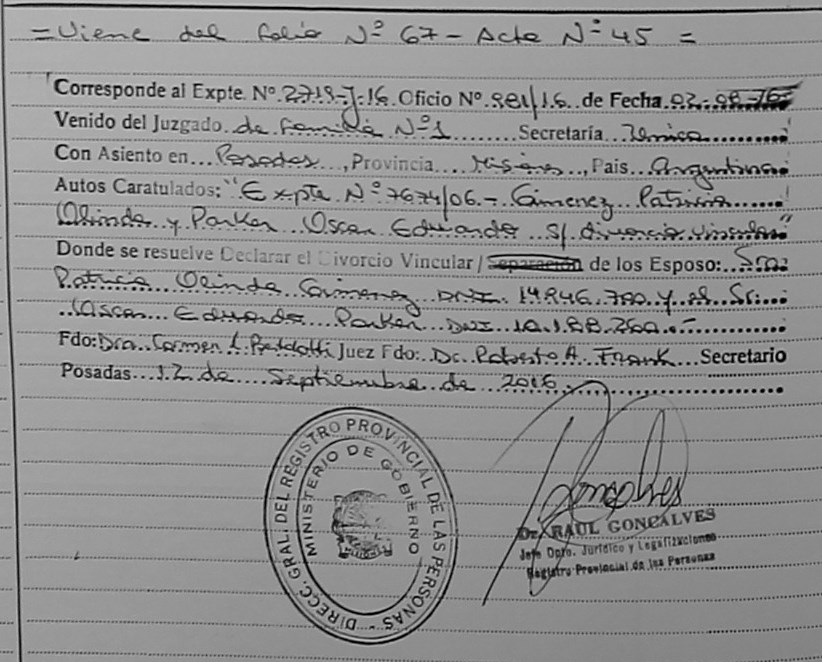 = Viene del folio Nº 67 - Acta Nº 45 =
Corresponde al Expte. Nº 2719-J-16 Oficio Nº 981/16 de Fecha 02-08-16
Venido del Juzgado de Familia Nº 1 Secretaría Unica
Con Asiento en Posadas, Provincia Misiones, Pais Argentina
Autos Caratulados: "Expte Nº 7674/06.- Gimenez Patricia
Olinda y Parker Oscar Eduardo S/ divorcio vincular"
Donde se resuelve Declarar el Divorcio Vincular / Separación de los Esposo: Sra.
Patricia Olinda Gimenez DNI. 14.946.700 y el Sr.
Oscar Eduardo Parker DNI 10.188.260.-
Fdo: Dra. Carmen Juez Fdo: Dr. Roberto A. Frank Secretario
Posadas 12 de Septiembre de 2016.
DIRECC. GRAL. DEL REGISTRO PROVINCIAL DE LAS PERSONAS
MINISTERIO DE GOBIERNO
Goncalves
Dr. RAUL GONCALVES
Jefe Dpto. Jurídico y Legalizaciones
Registro Provincial de las Personas